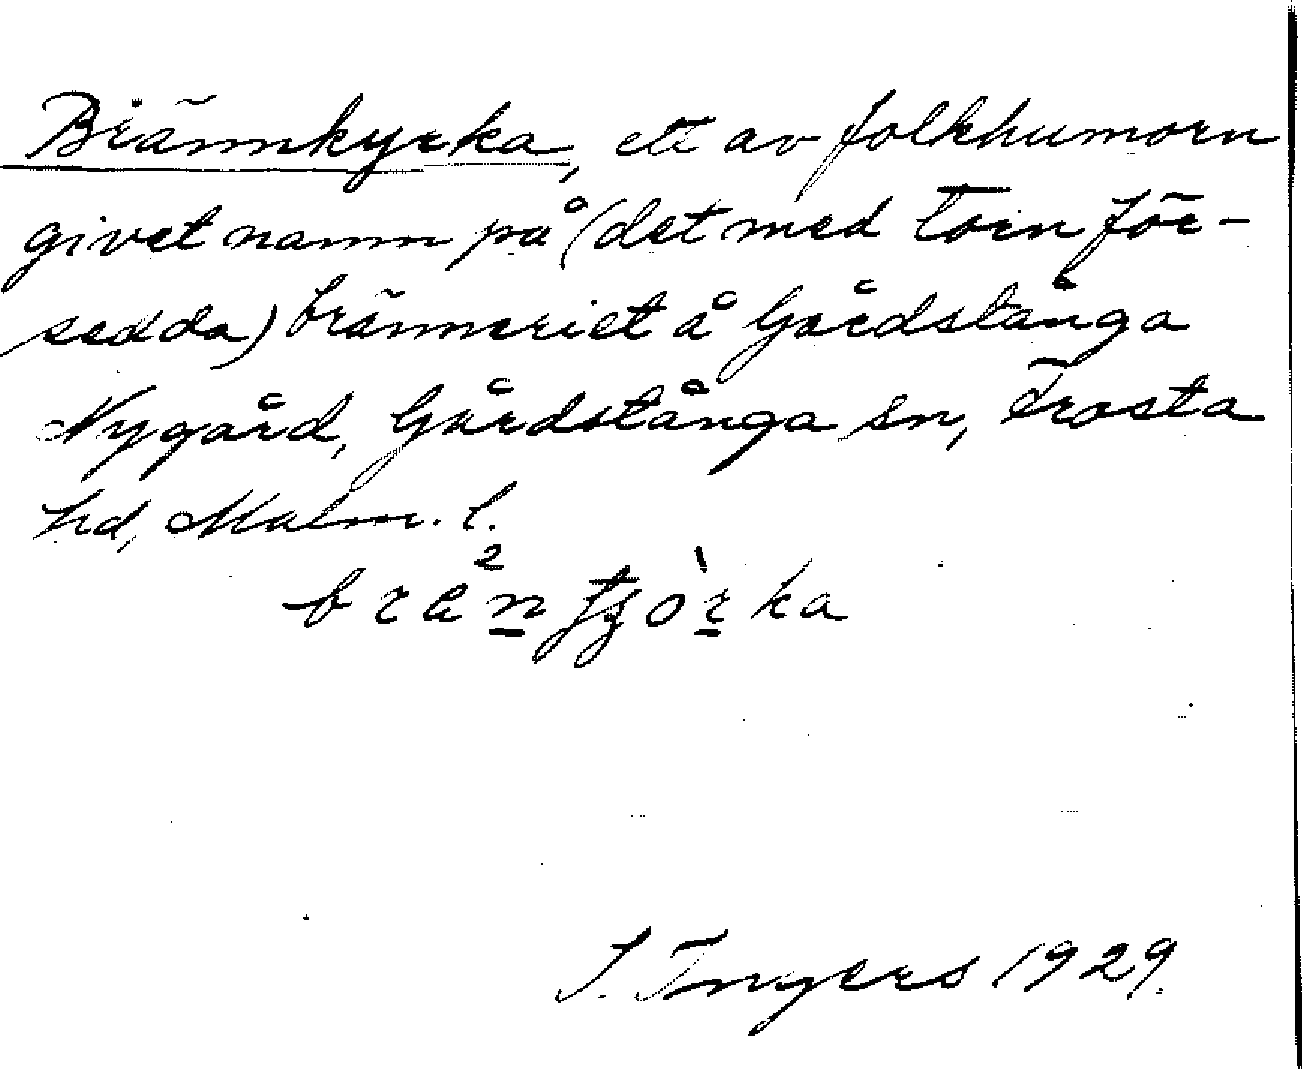 Brännkyrka, ett av folkhumorn
givet namn på (det med torn för-
sedda) bränneriet å Gårdstånga
Nygård, Gårdstånga sn, Frosta
hd, Malm. l.
I. Ingers 1929.